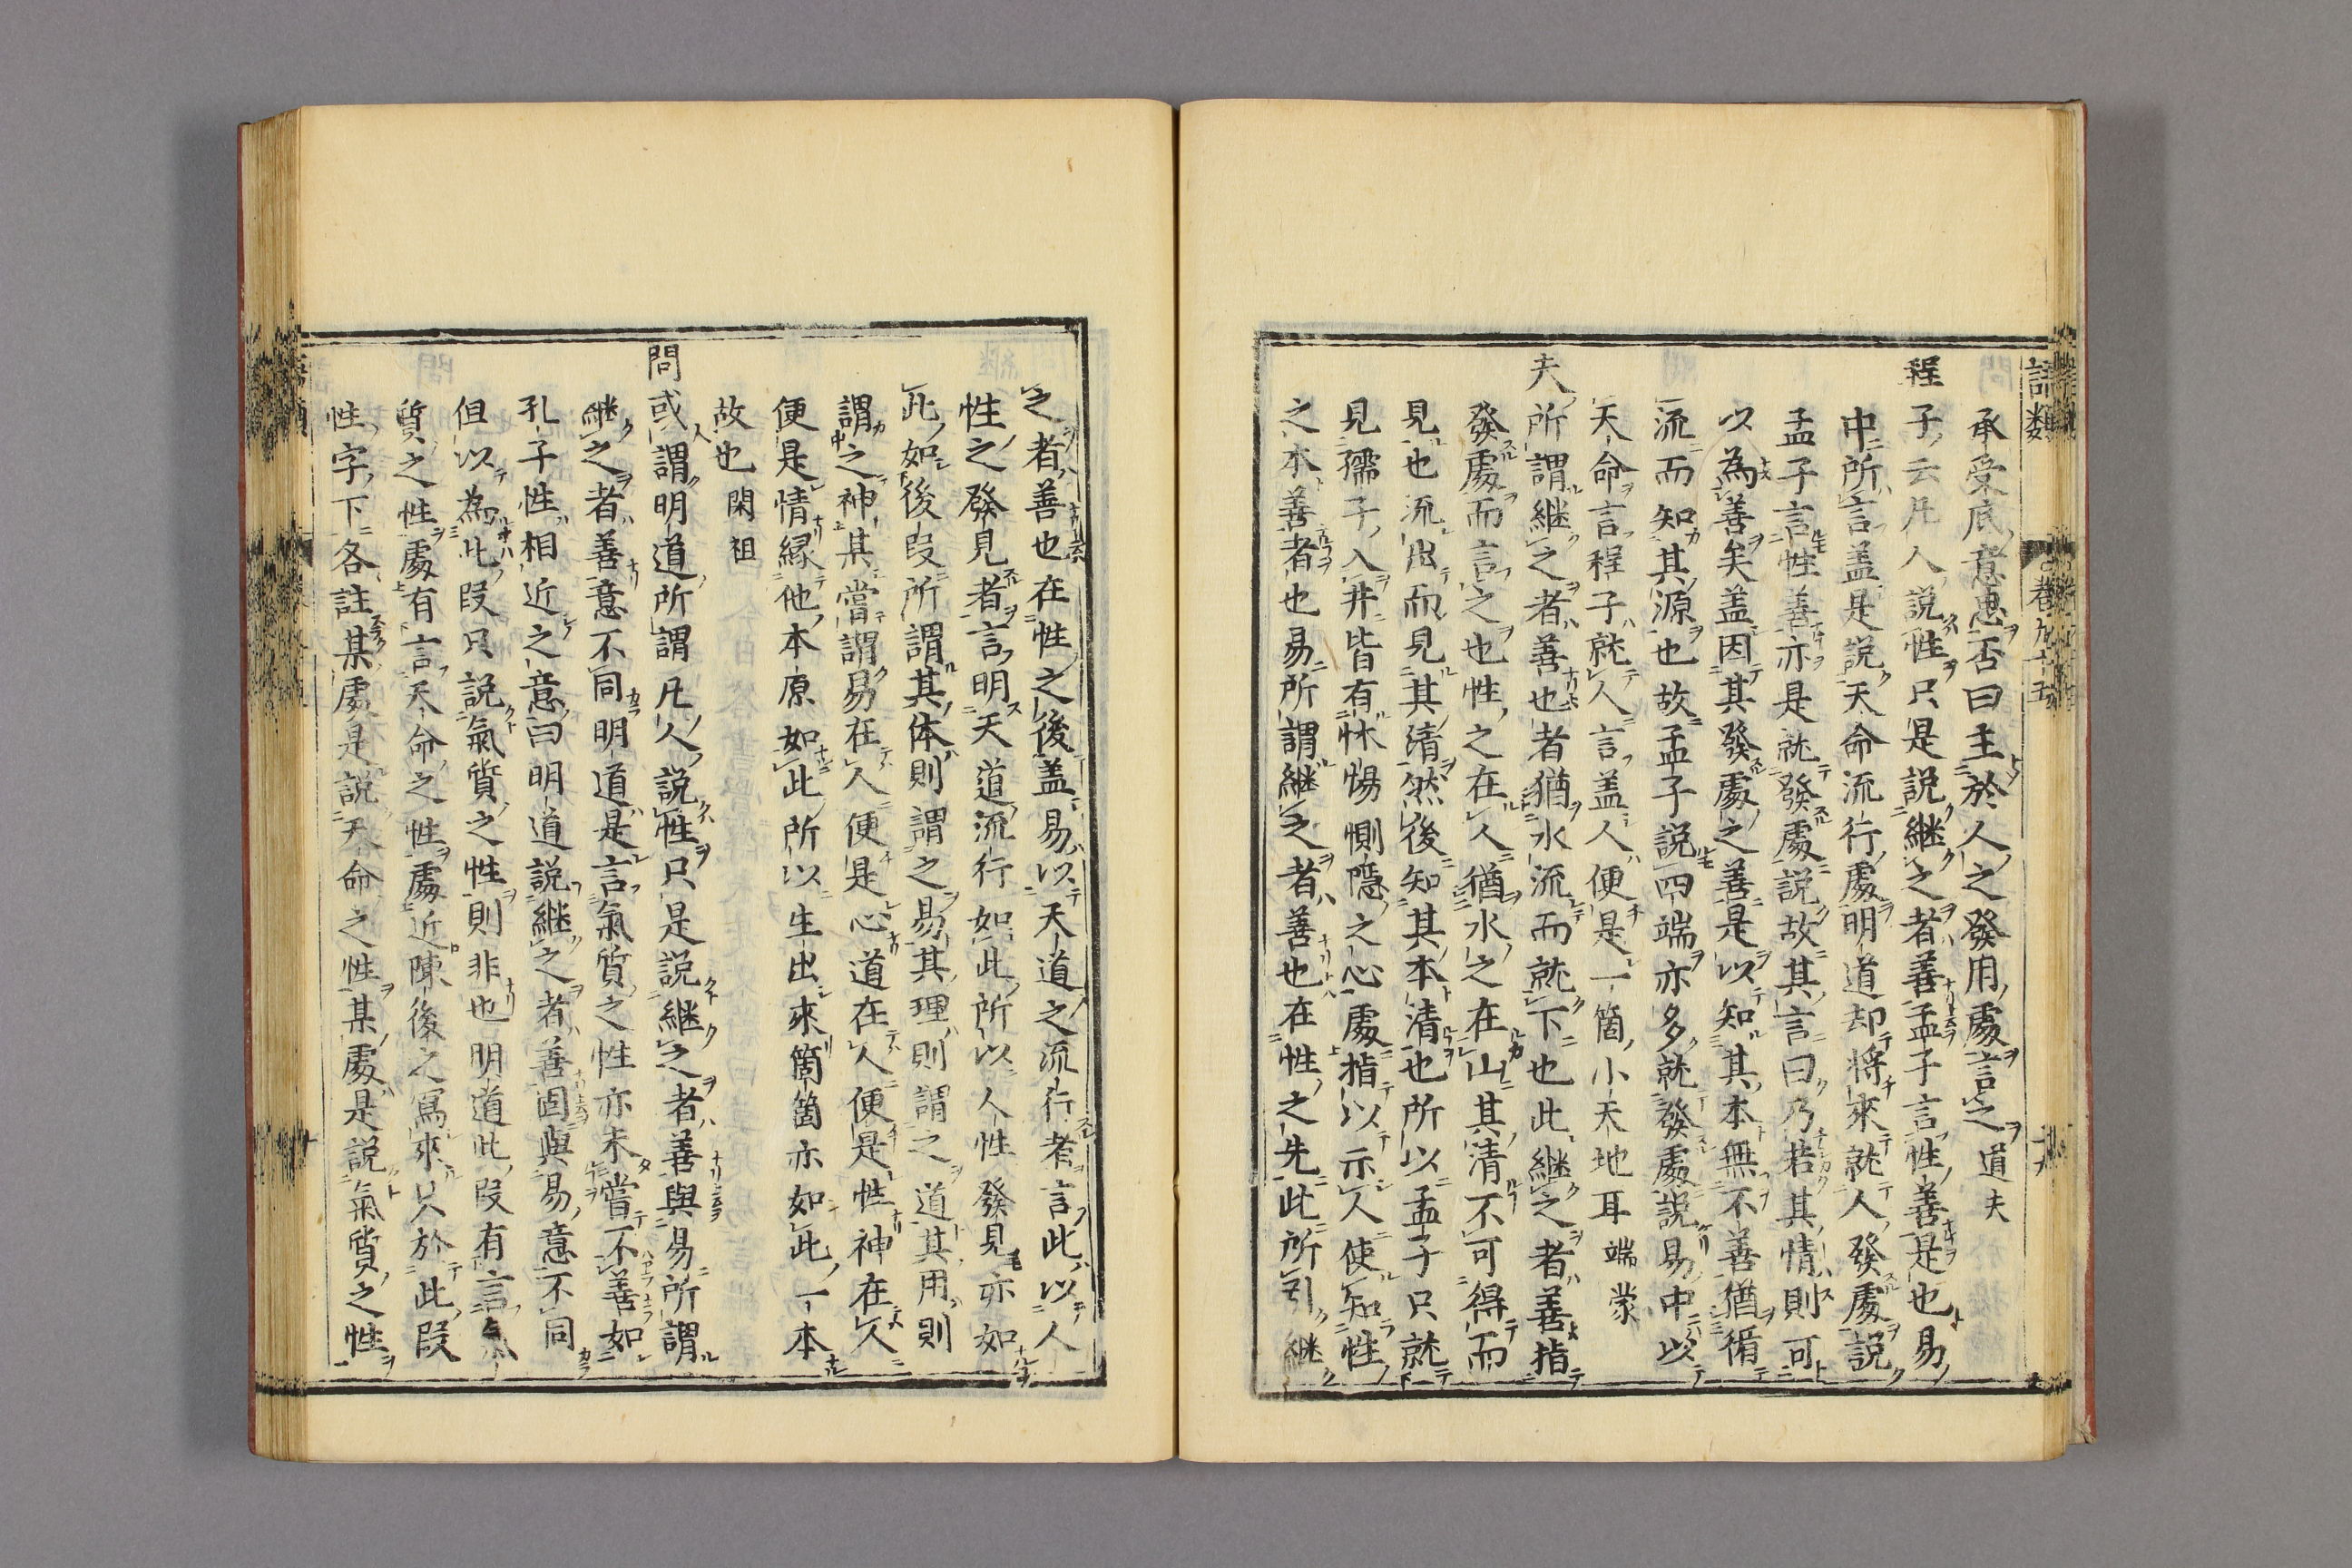 語類
卷九十五
十六
承受底意思否曰主於人之發用處言之道夫
程子云凡人說性只是說継之者善孟子言性善是也易
中所言盖是説天命流行處明道却將來就人發處説
孟子言性善亦是就發處説故其言曰乃若其情則可
以為善矣盖因其發處之善是以知其本無不善猶循
流而知其源也故孟子説四端亦多就發處説易中以
天命言程子就人言盖人便是一箇小天地耳端蒙
夫所謂継之者善也者猶水流而就下也此継之者善指
發處而言之也性之在人猶水之在山其清不可得而
見也流出而見其清然後知其本清也所以孟子只就
見孺子入井皆有怵惕惻隱之心處指以示人使知性
之本善者也易所謂継之者善也在性之先此所引継
之者善也在性之後盖易以天道之流行者言此以人
性之發見者言明天道流行如此所以人性發見亦如
此如後段所謂其体則謂之易其理則謂之道其用則
謂之神某嘗謂易在人便是心道在人便是性神在人
便是情縁他本原如此所以生出來箇箇亦如此一本
故也閎祖
問或謂明道所謂凡人説性只是説継之者善與易所謂
継之者善意不同明道是言氣質之性亦未嘗不善如
孔子性相近之意曰明道説継之者善固與易意不同
但以為此段只説氣質之性則非也明道此段有言氣
質之性處有言天命之性處近陳後之寫來只於此段
性字下各註某處是説天命之性某處是説氣質之性